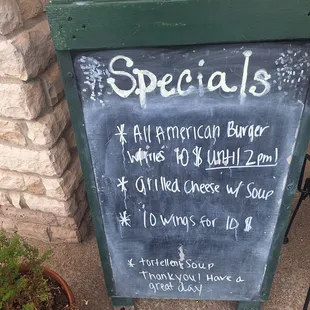 Specials
* All American Burger
w/fries 10 $ UNTIL 2pm!
* Grilled Cheese w/ Soup
* 10 Wings for 10 $
* tortellent Soup
Thank you! Have a
great day